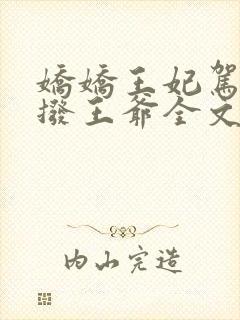 嬌嬌王妃駕
撥王爺全文
内山完造